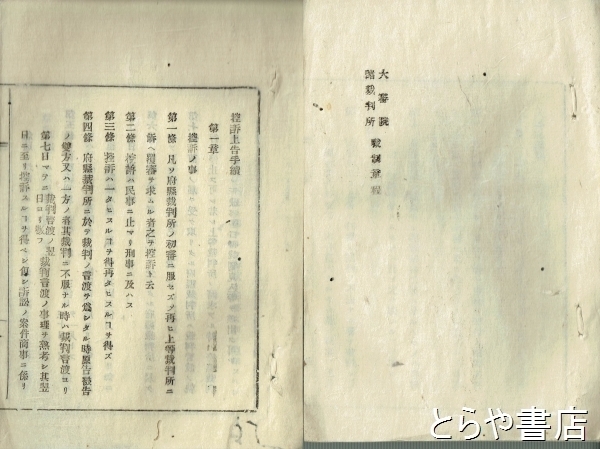 大審院
諸裁判所
職制章程
控訴上告手續
第一章
控訴ノ事
第一條 凡ソ府縣裁判所ノ初審ニ服セズノ再ヒ上等裁判所ニ
訴ヘ覆審ヲ求ムル者之ヲ控訴ト云
第二條 控訴ハ民事ニ止マリ刑事ニ及ハス
第三條 控訴ハ一タヒスルヿヲ得再タヒスルヿヲ得ズ
第四條 府縣裁判所ニ於テ裁判ノ言渡ヲ爲シタル時原告被告
ノ雙方又ハ一方ノ者其裁判ニ不服ナル時ハ裁判言渡ヨリ
第七日マテニ 裁判言渡ノ翌日ヨリ數フ 裁判言渡ノ事理ヲ熟考シ其翌
日ニ至リ控訴スルヿヲ得ベシ但シ訴訟ノ案件商事ニ係リ
とらや書店